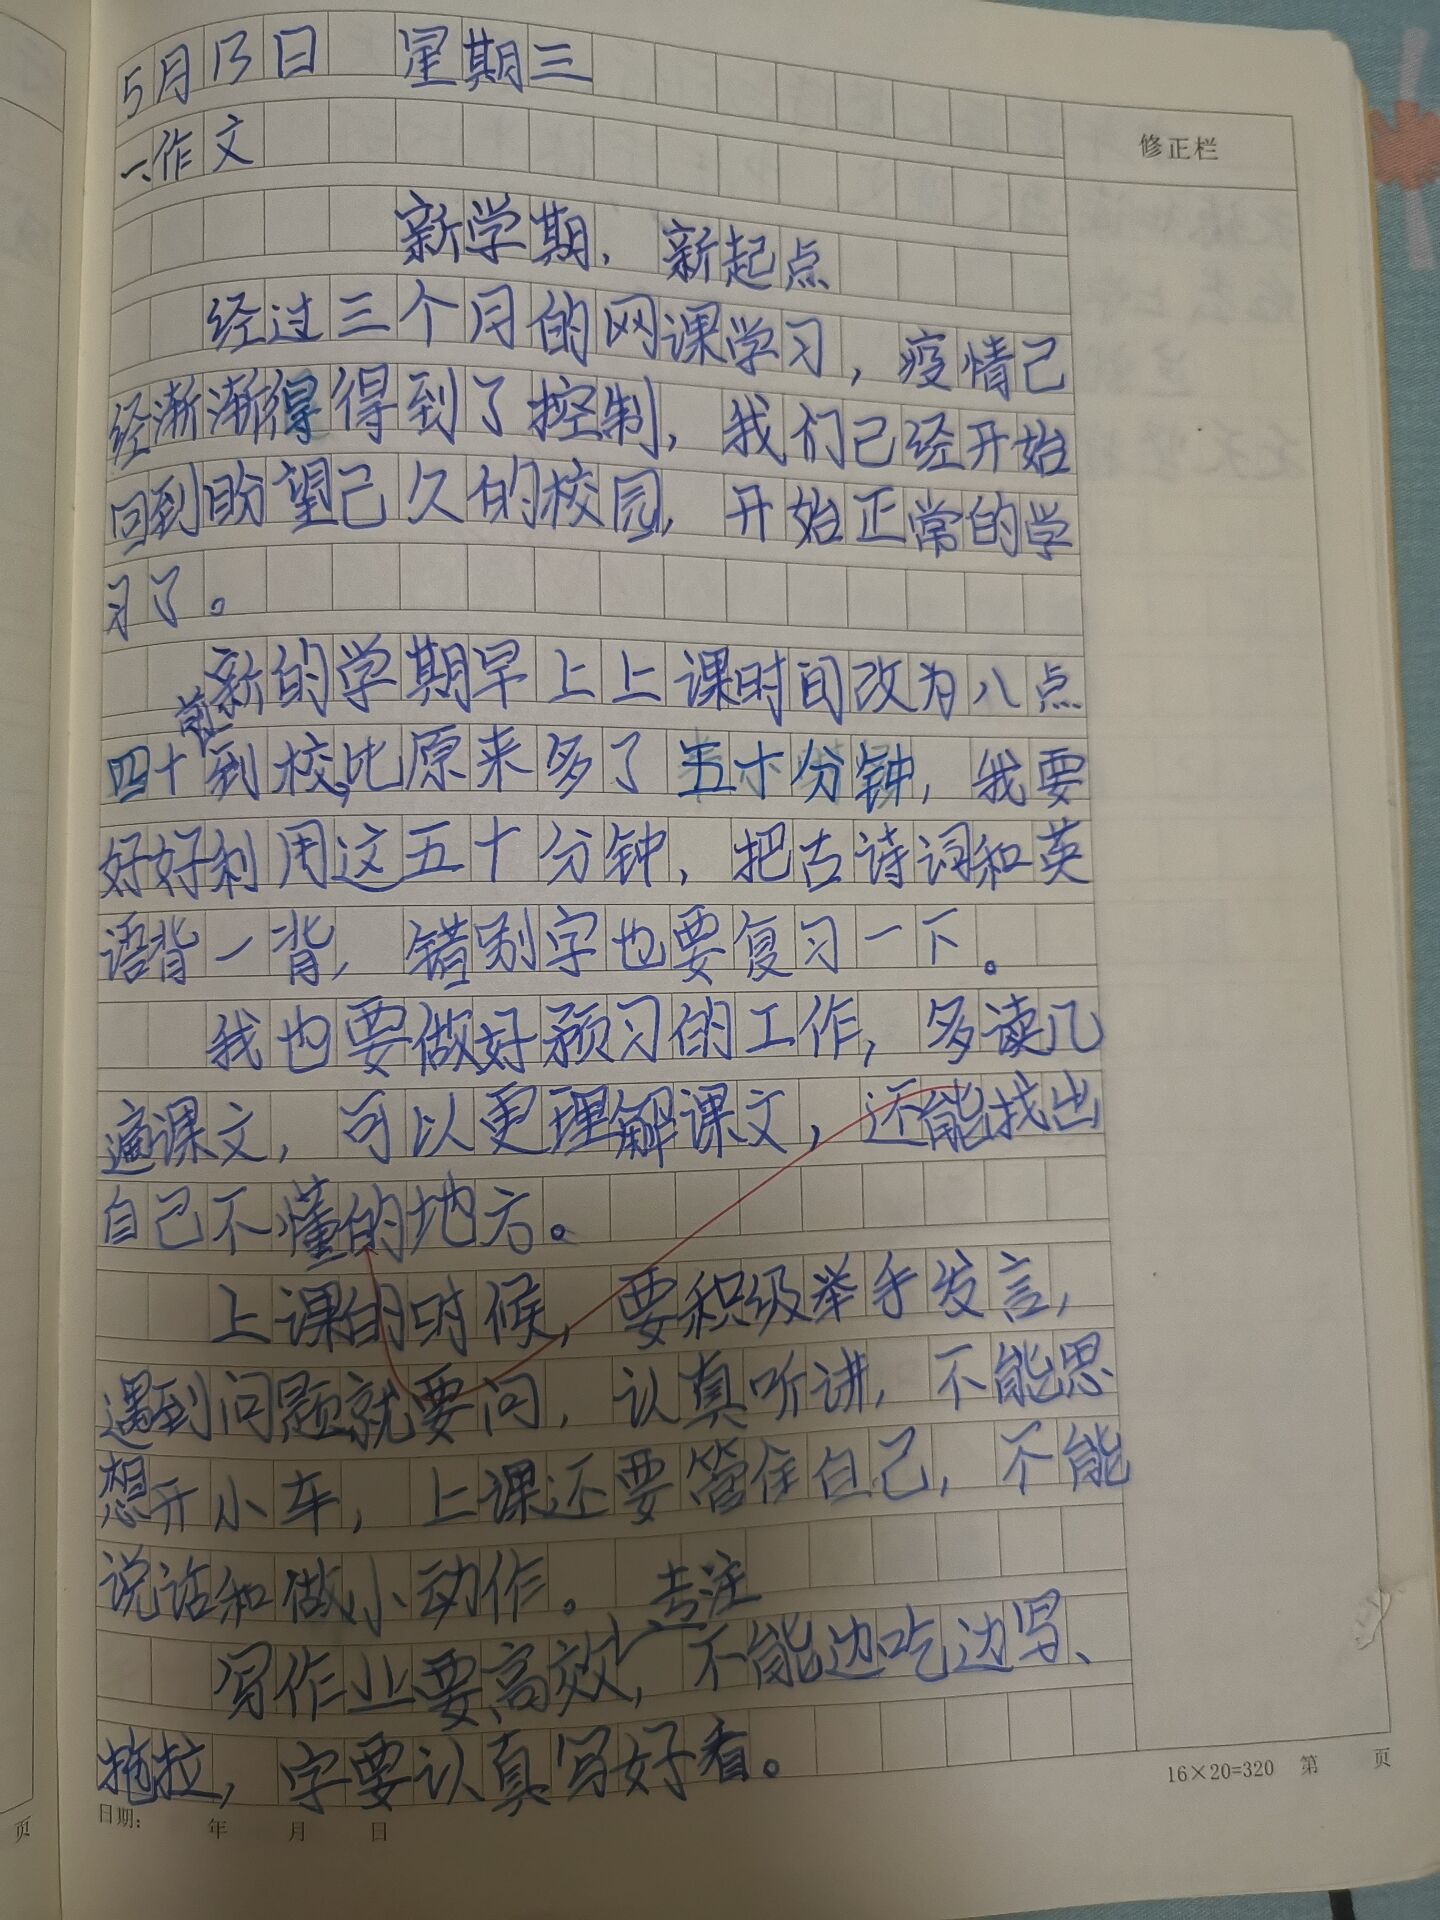 5月13日 星期三
修正栏
一、作文
新学期，新起点
经过三个月的网课学习，疫情已
经渐渐得得到了控制，我们已经开始
回到盼望已久的校园，开始正常的学
习了。
新的学期早上上课时间改为八点
四十前到校，比原来多了五十分钟，我要
好好利用这五十分钟，把古诗词和英
语背一背，错别字也要复习一下。
我也要做好预习的工作，多读几
遍课文，可以更理解课文，还能找出
自己不懂的地方。
上课的时候，要积级举手发言，
遇到问题就要问，认真听讲，不能思
想开小车，上课还要管住自己，不能
说话和做小动作。
写作业要高效、专注，不能边吃边写、
拖拉，字要认真写好看。
16×20=320 第 页
日期： 年 月 日
页